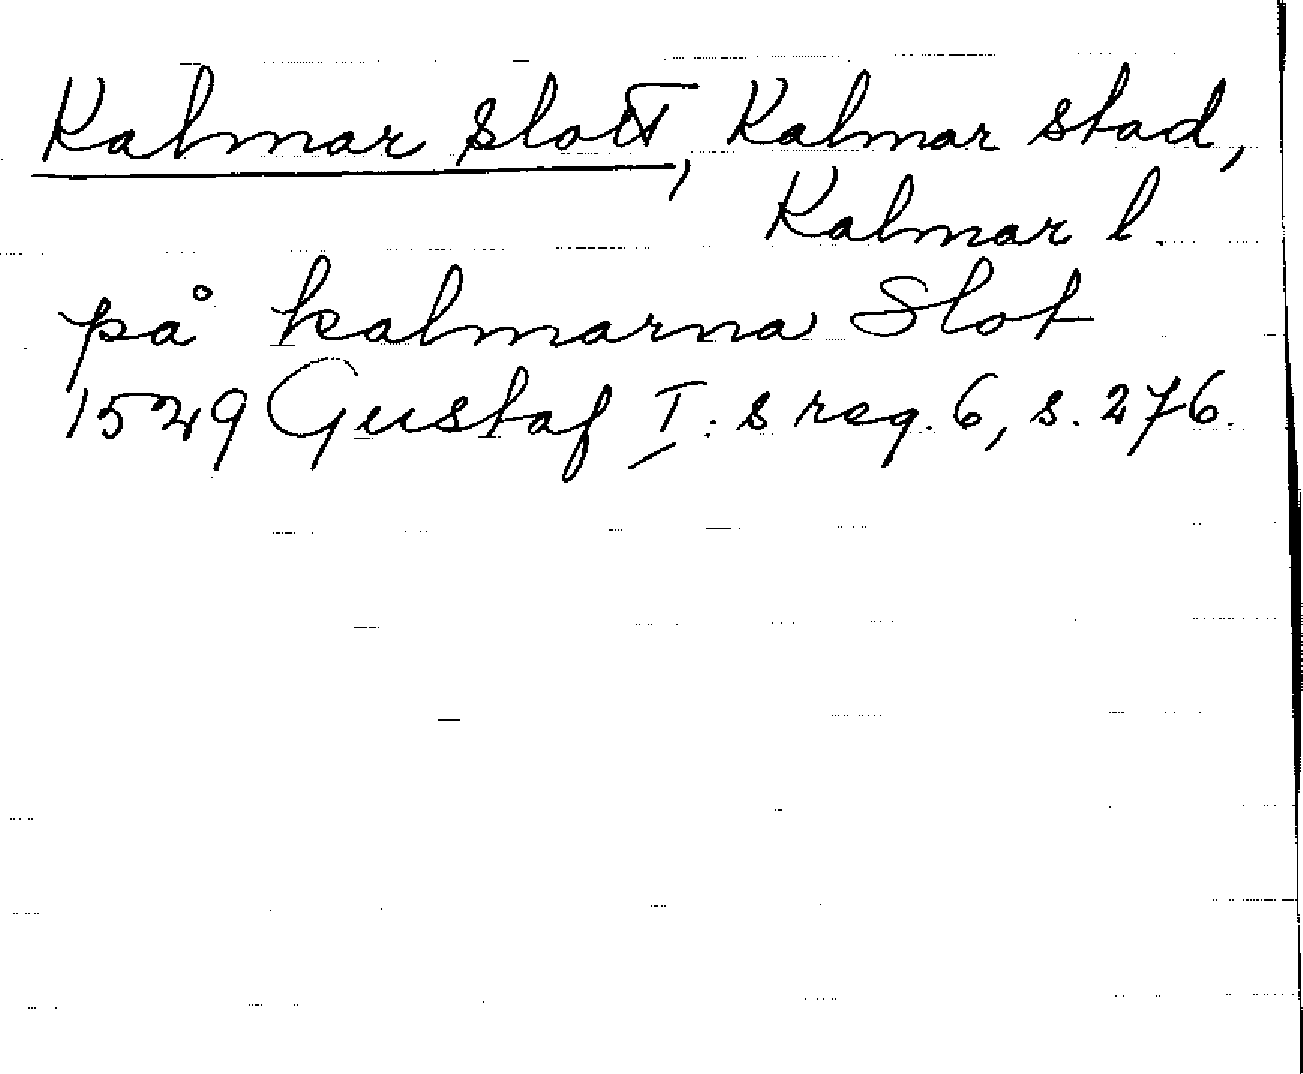 Kalmar slott, Kalmar stad,
Kalmar l.
på kalmarna Slot
1529 Gustaf I:s reg. 6, s. 276.